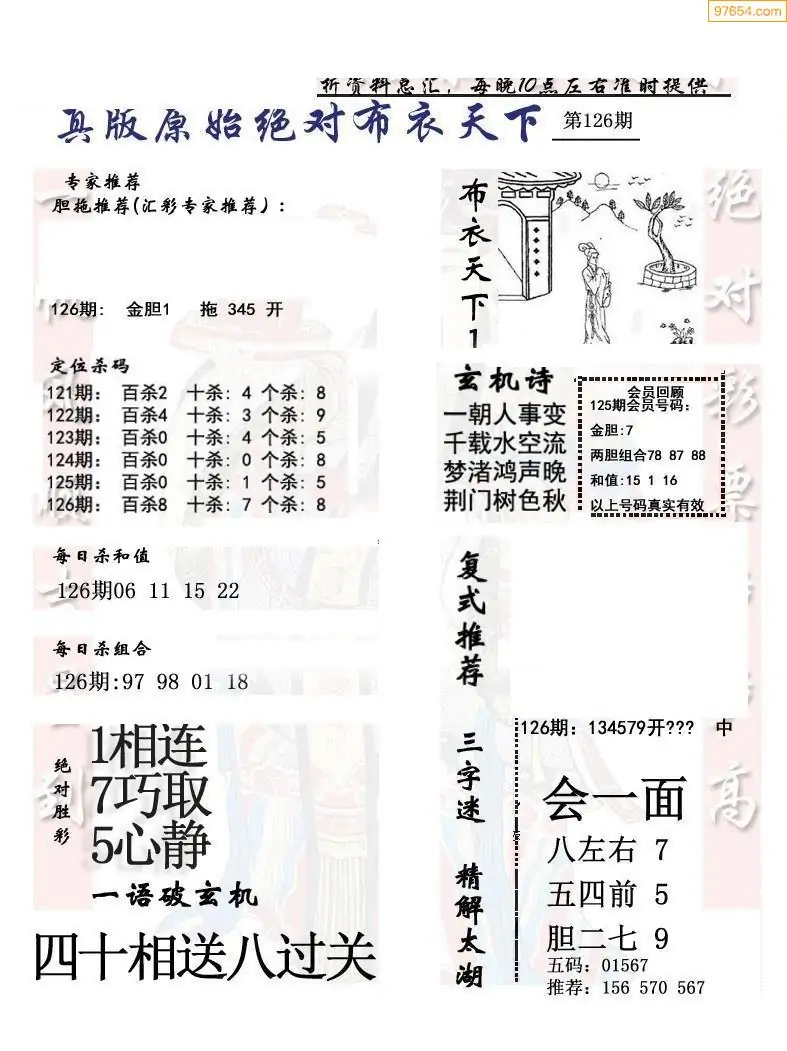 97654.com
析资料总汇，每晚10点左右准时提供
真版原始绝对布衣天下
第126期
专家推荐
胆拖推荐(汇彩专家推荐)：
126期: 金胆1 拖 345 开
定位杀码
121期: 百杀2 十杀: 4 个杀: 8
122期: 百杀4 十杀: 3 个杀: 9
123期: 百杀0 十杀: 4 个杀: 5
124期: 百杀0 十杀: 0 个杀: 8
125期: 百杀0 十杀: 1 个杀: 5
126期: 百杀8 十杀: 7 个杀: 8
每日杀和值
126期06 11 15 22
每日杀组合
126期:97 98 01 18
绝对胜彩
1相连
7巧取
5心静
一语破玄机
四十相送八过关
布衣天下1
玄机诗
一朝人事变
千载水空流
梦渚鸿声晚
荆门树色秋
会员回顾
125期会员号码:
金胆:7
两胆组合78 87 88
和值:15 1 16
以上号码真实有效
复式推荐
126期: 134579开??? 中
三字迷
会一面
精解太湖
八左右 7
五四前 5
胆二七 9
五码: 01567
推荐: 156 570 567
绝对彩票
高